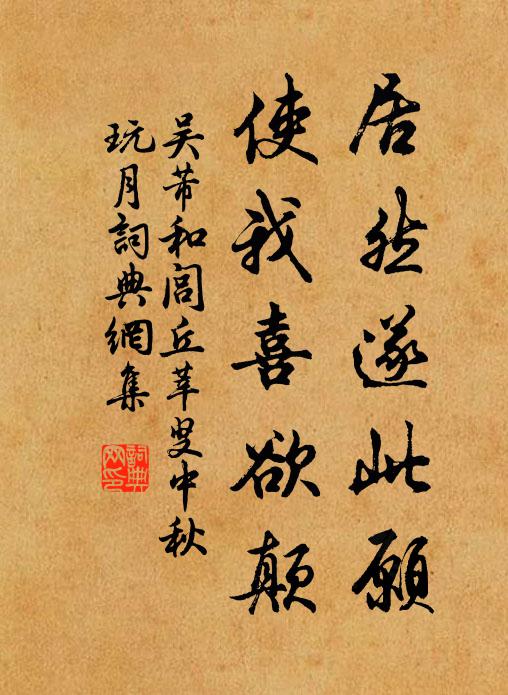 居然遂此願
使我喜欲顛
吴芾和闾丘莘叟中秋
玩月詞典網集
詞典
网印